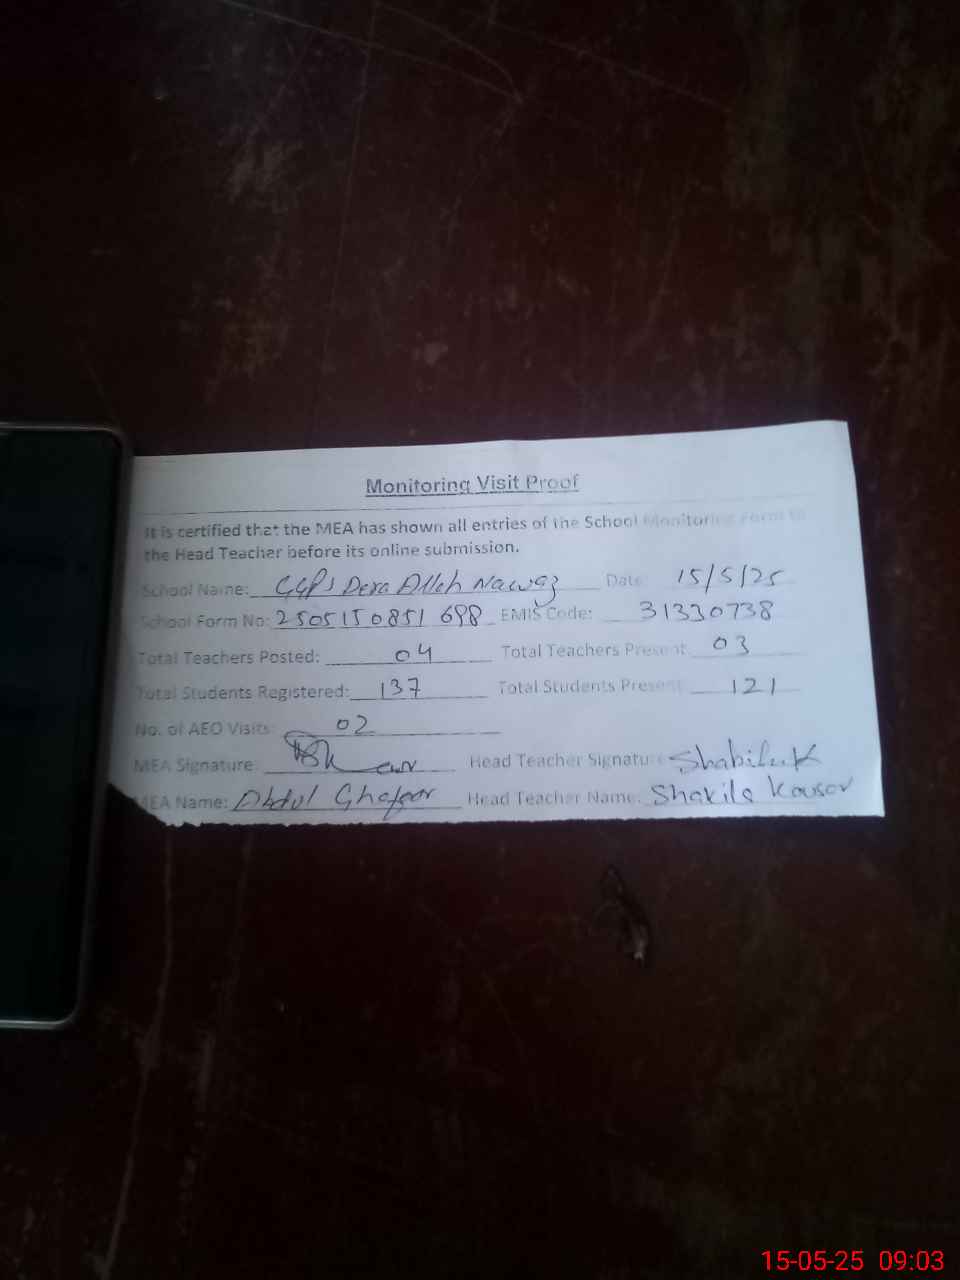 Monitoring Visit Proof
It is certified that the MEA has shown all entries of the School Monitoring Form to
the Head Teacher before its online submission.
School Name: GGPS Dera Allah Nawaz Date 15/5/25
School Form No: 2505150851698 EMIS Code: 31330738
Total Teachers Posted: 04 Total Teachers Present 03
Total Students Registered: 137 Total Students Present 121
No. of AEO Visits: 02
MEA Signature: Head Teacher Signature
MEA Name: Abdul Ghafoor Head Teacher Name: Shakila Kousar
15-05-25 09:03